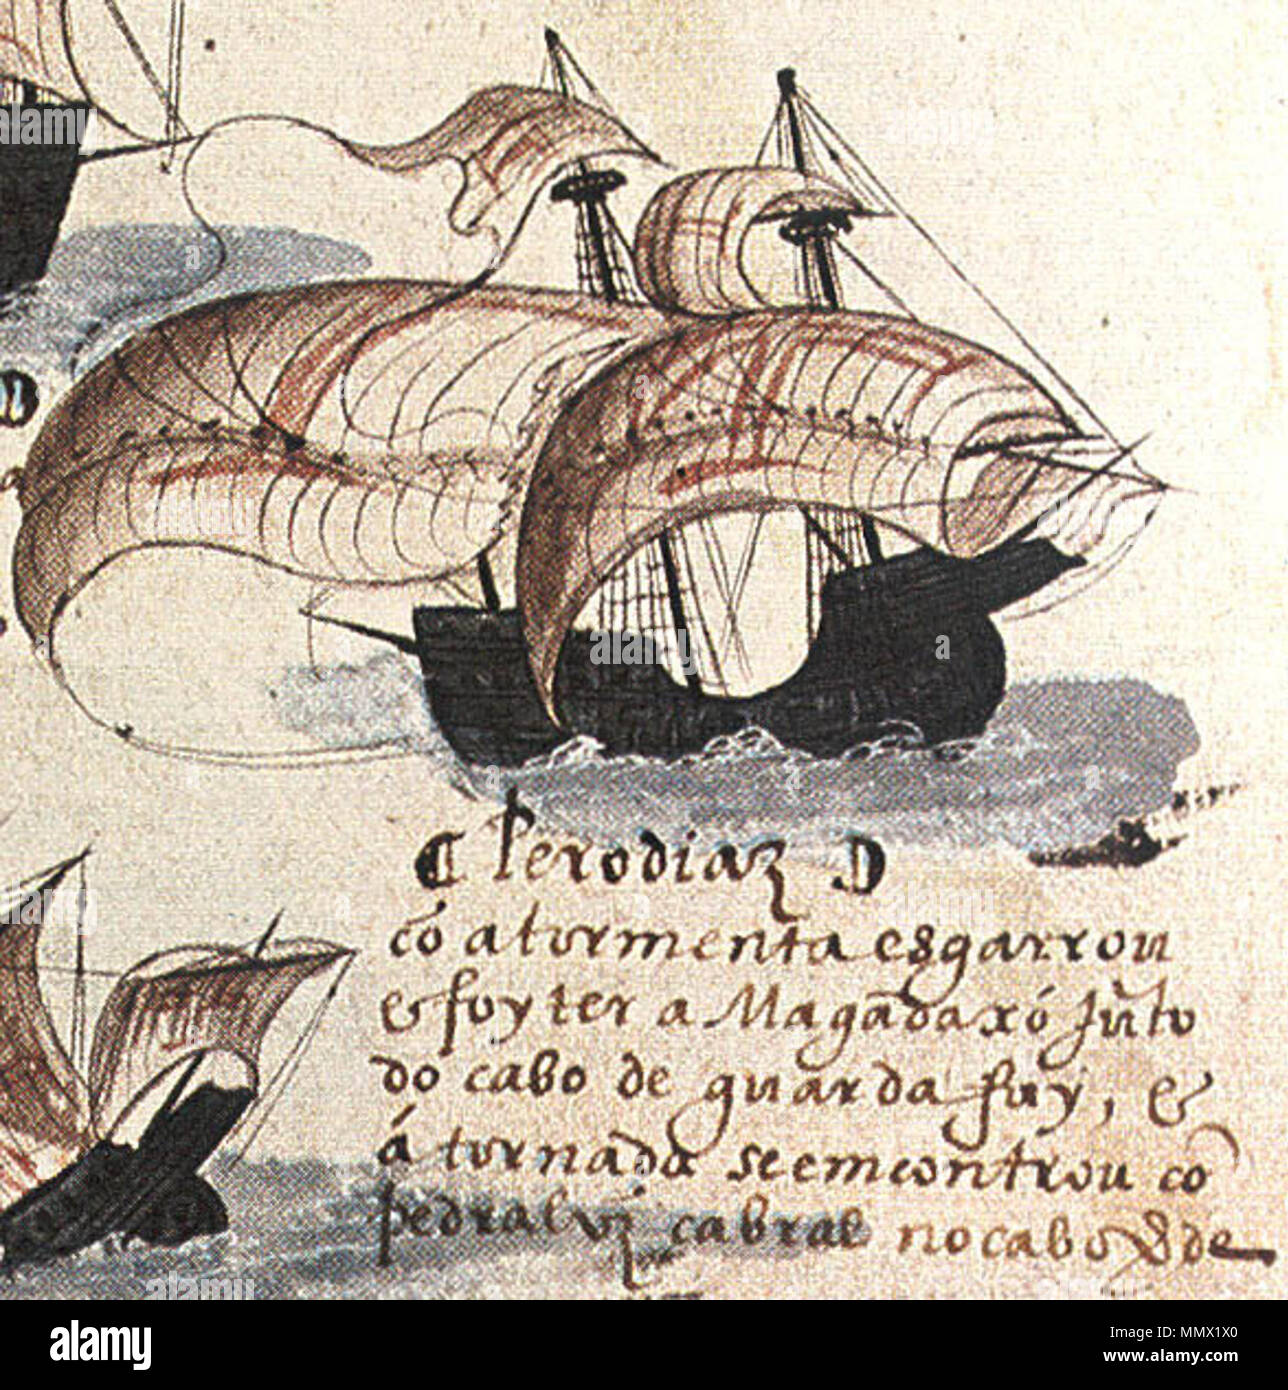 Perodiaz
cõ a tormenta esgarrou
& foy ter a Magadaxó Jũto
do cabo de guarda fuy, &
á tornada se emcontrou cõ
pedralvz cabral no cabo Vde
alamy
alamy
Image ID: MMX1X0
www.alamy.com